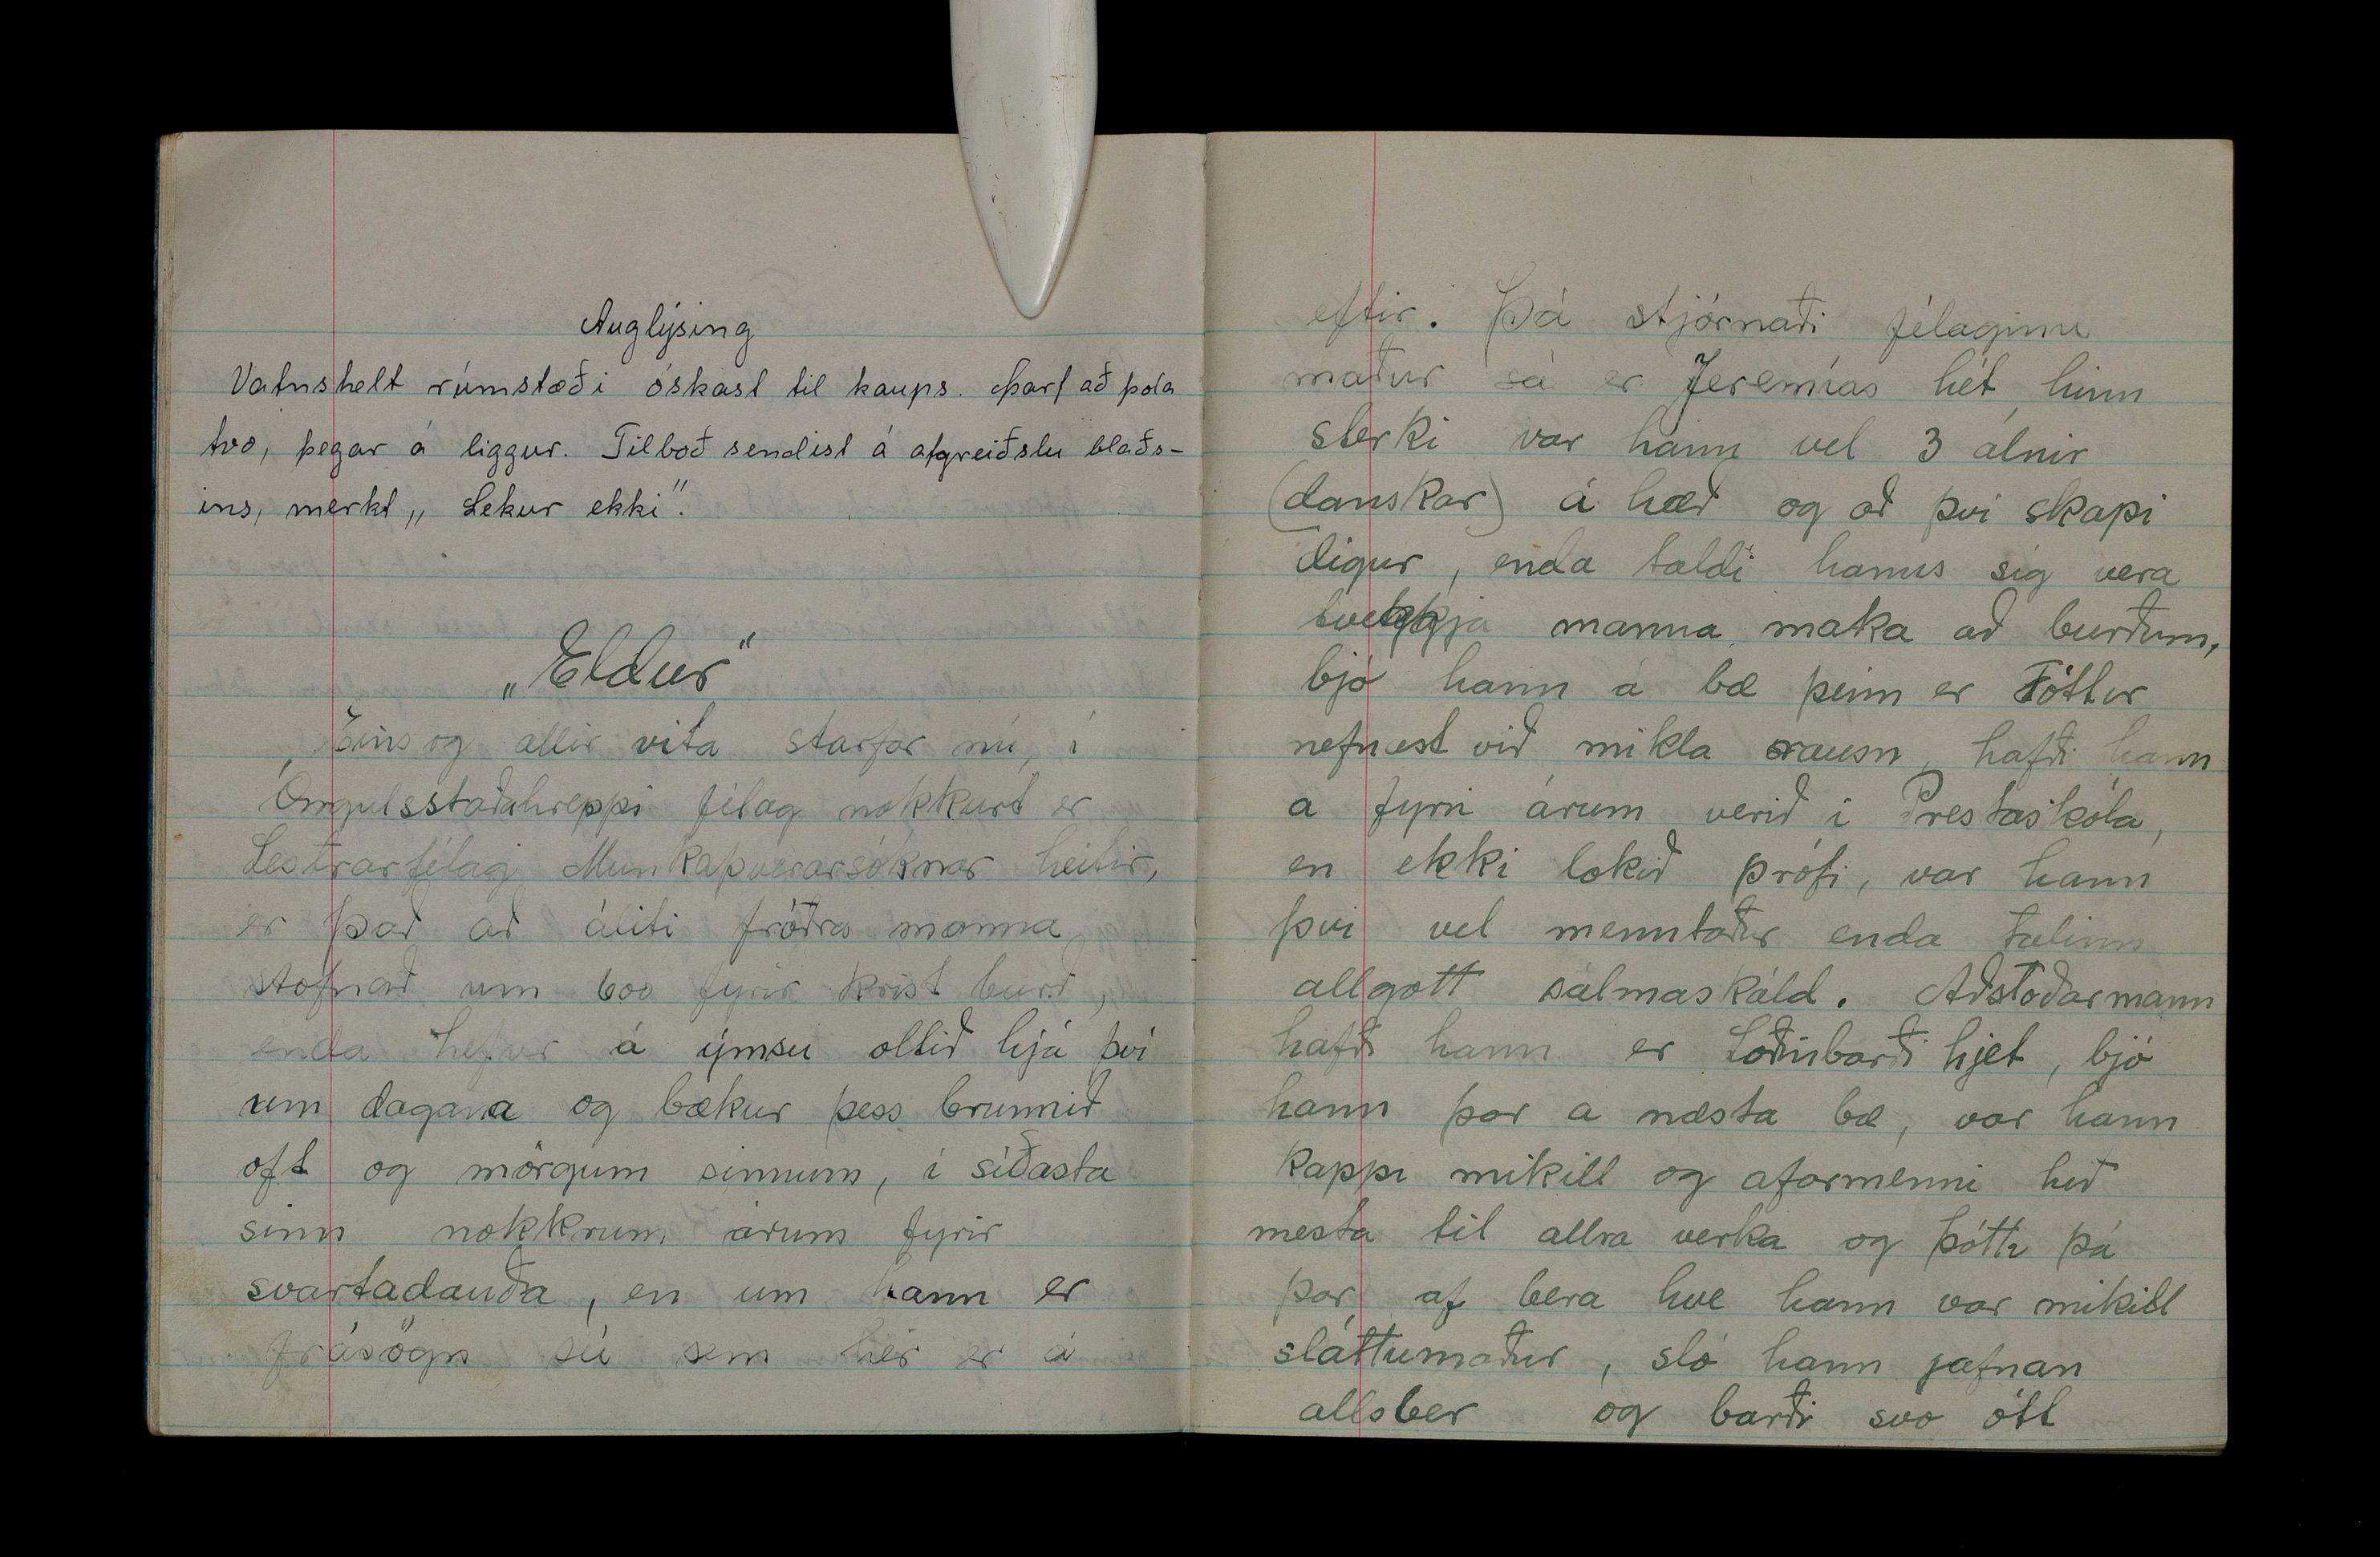 Auglýsing
Vatnshelt rúmstæði óskast til kaups. Þarf að þola
tvo, þegar á liggur. Tilboð sendist á afgreiðslu blaðs-
ins, merkt „Lekur ekki".
„Eldur"
Eins og allir vita starfar nú, í
Öngulsstaðahreppi félag nokkurt er
Lestrarfélag Munkaþverarsóknar heitir,
er það að áliti fróðra manna
stofnað um 600 fyrir krist burð,
enda hefur á ýmsu oltið hjá því
um dagana og bækur þess brunnið
oft og mörgum sinnum, í síðasta
sinn nokkrum árum fyrir
svartadauða, en um hann er
frásögn sú sem hér er á
eftir. Þá stjórnaði félaginu
maður sá er Jeremías hét, hinn
sterki var hann vel 3 álnir
(danskar) á hæð og að því skapi
digur, enda taldi hanns sig vera
manna maka að burðum,
bjó hann á bæ þeim er Tóttir
nefnest við mikla rausn, hafði hann
a fyrri árum verið í Prestaskóla,
en ekki lokið prófi, var hann
því vel menntaður enda talinn
allgott sálmaskáld. Aðstoðarmann
hafði hann er Loðinbarði hjet, bjó
hann þar a næsta bæ, var hann
kappi mikill og afarmenni hið
mesta til allra verka og þótti þá
þar af bera hve hann var mikill
sláttumaður, sló hann jafnan
allsber og barði svo ótt